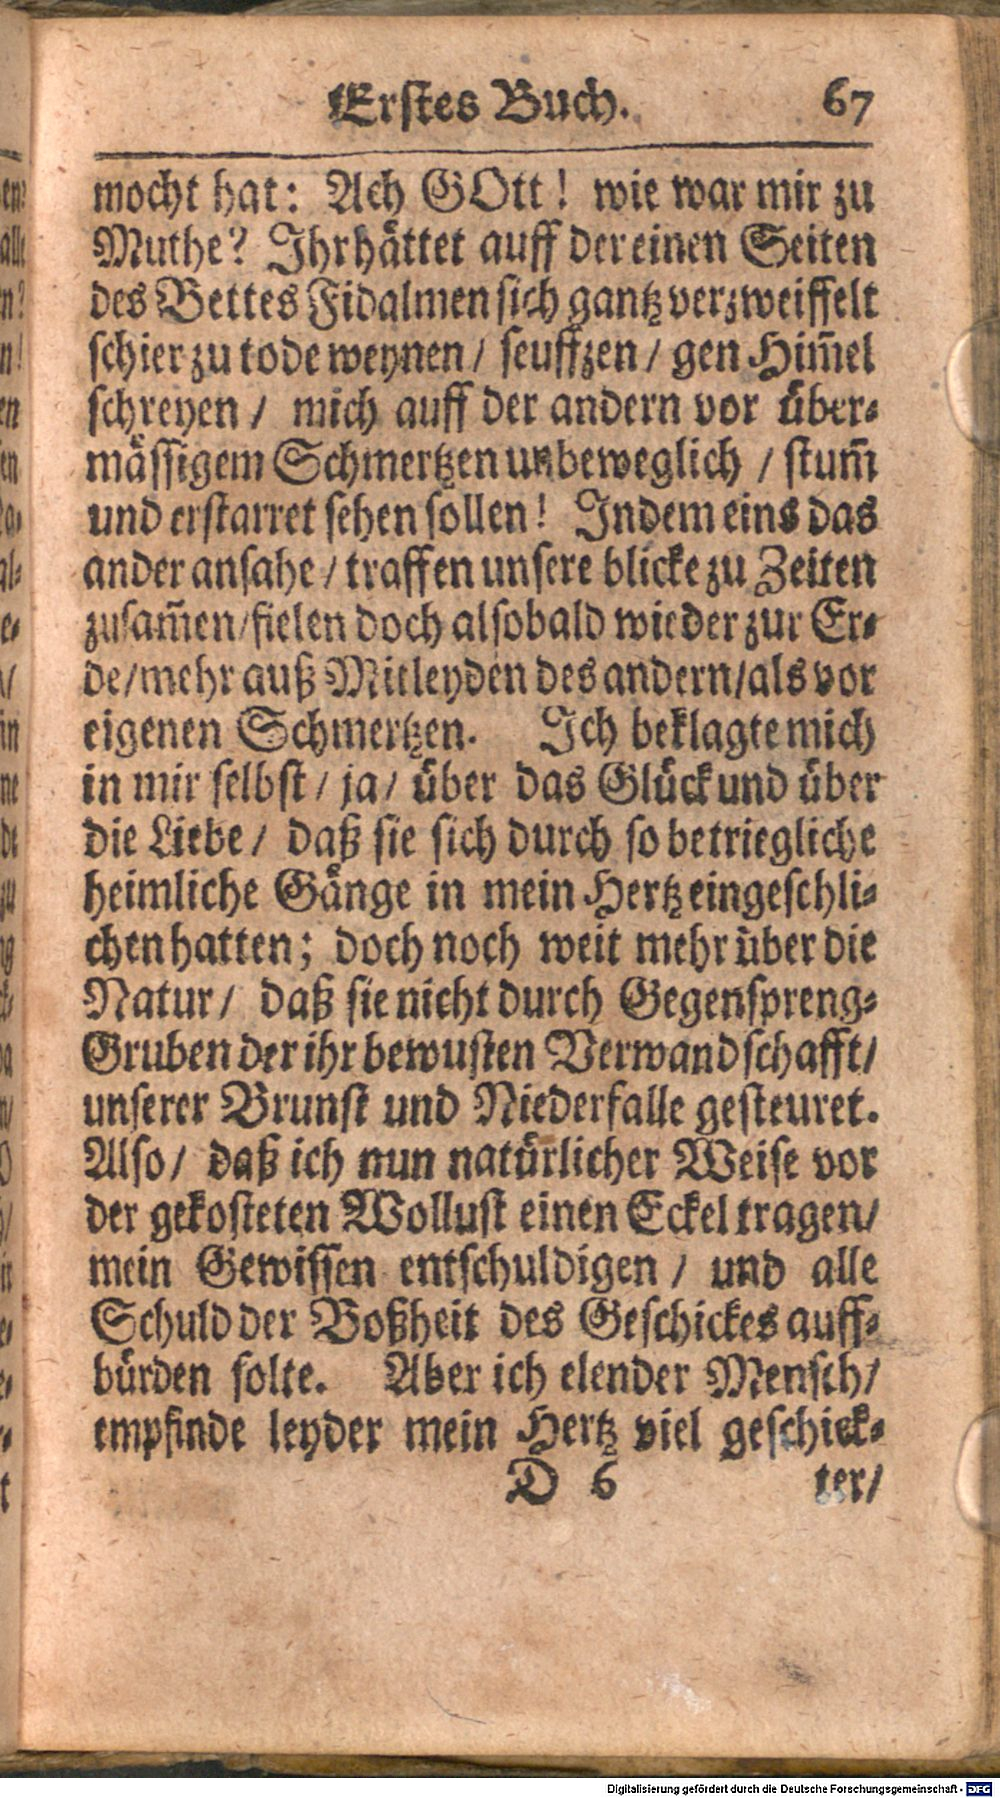 Erstes Buch. 67
mocht hat: Ach GOtt! wie war mir zu
Muthe? Ihr hättet auff der einen Seiten
des Bettes Fidalmen sich gantz verzweiffelt
schier zu tode weynen / seuffzen / gen Him̃el
schreyen / mich auff der andern vor über-
mässigem Schmertzen unbeweglich / stum̃
und erstarret sehen sollen! Indem eins das
ander ansahe / traffen unsere blicke zu Zeiten
zusam̃en / fielen doch alsobald wieder zur Er-
de / mehr auß Mitleyden des andern / als vor
eigenen Schmertzen. Ich beklagte mich
in mir selbst / ja / über das Glück und über
die Liebe / daß sie sich durch so betriegliche
heimliche Gänge in mein Hertz eingeschli-
chen hatten; doch noch weit mehr über die
Natur / daß sie nicht durch Gegenspreng-
Gruben der ihr bewusten Verwandschafft /
unserer Brunst und Niederfalle gesteuret.
Also / daß ich nun natürlicher Weise vor
der gekosteten Wollust einen Eckel tragen /
mein Gewissen entschuldigen / und alle
Schuld der Boßheit des Geschickes auff-
bürden solte. Aber ich elender Mensch /
empfinde leyder mein Hertz viel geschick-
D 6 ter /
Digitalisierung gefördert durch die Deutsche Forschungsgemeinschaft - DFG